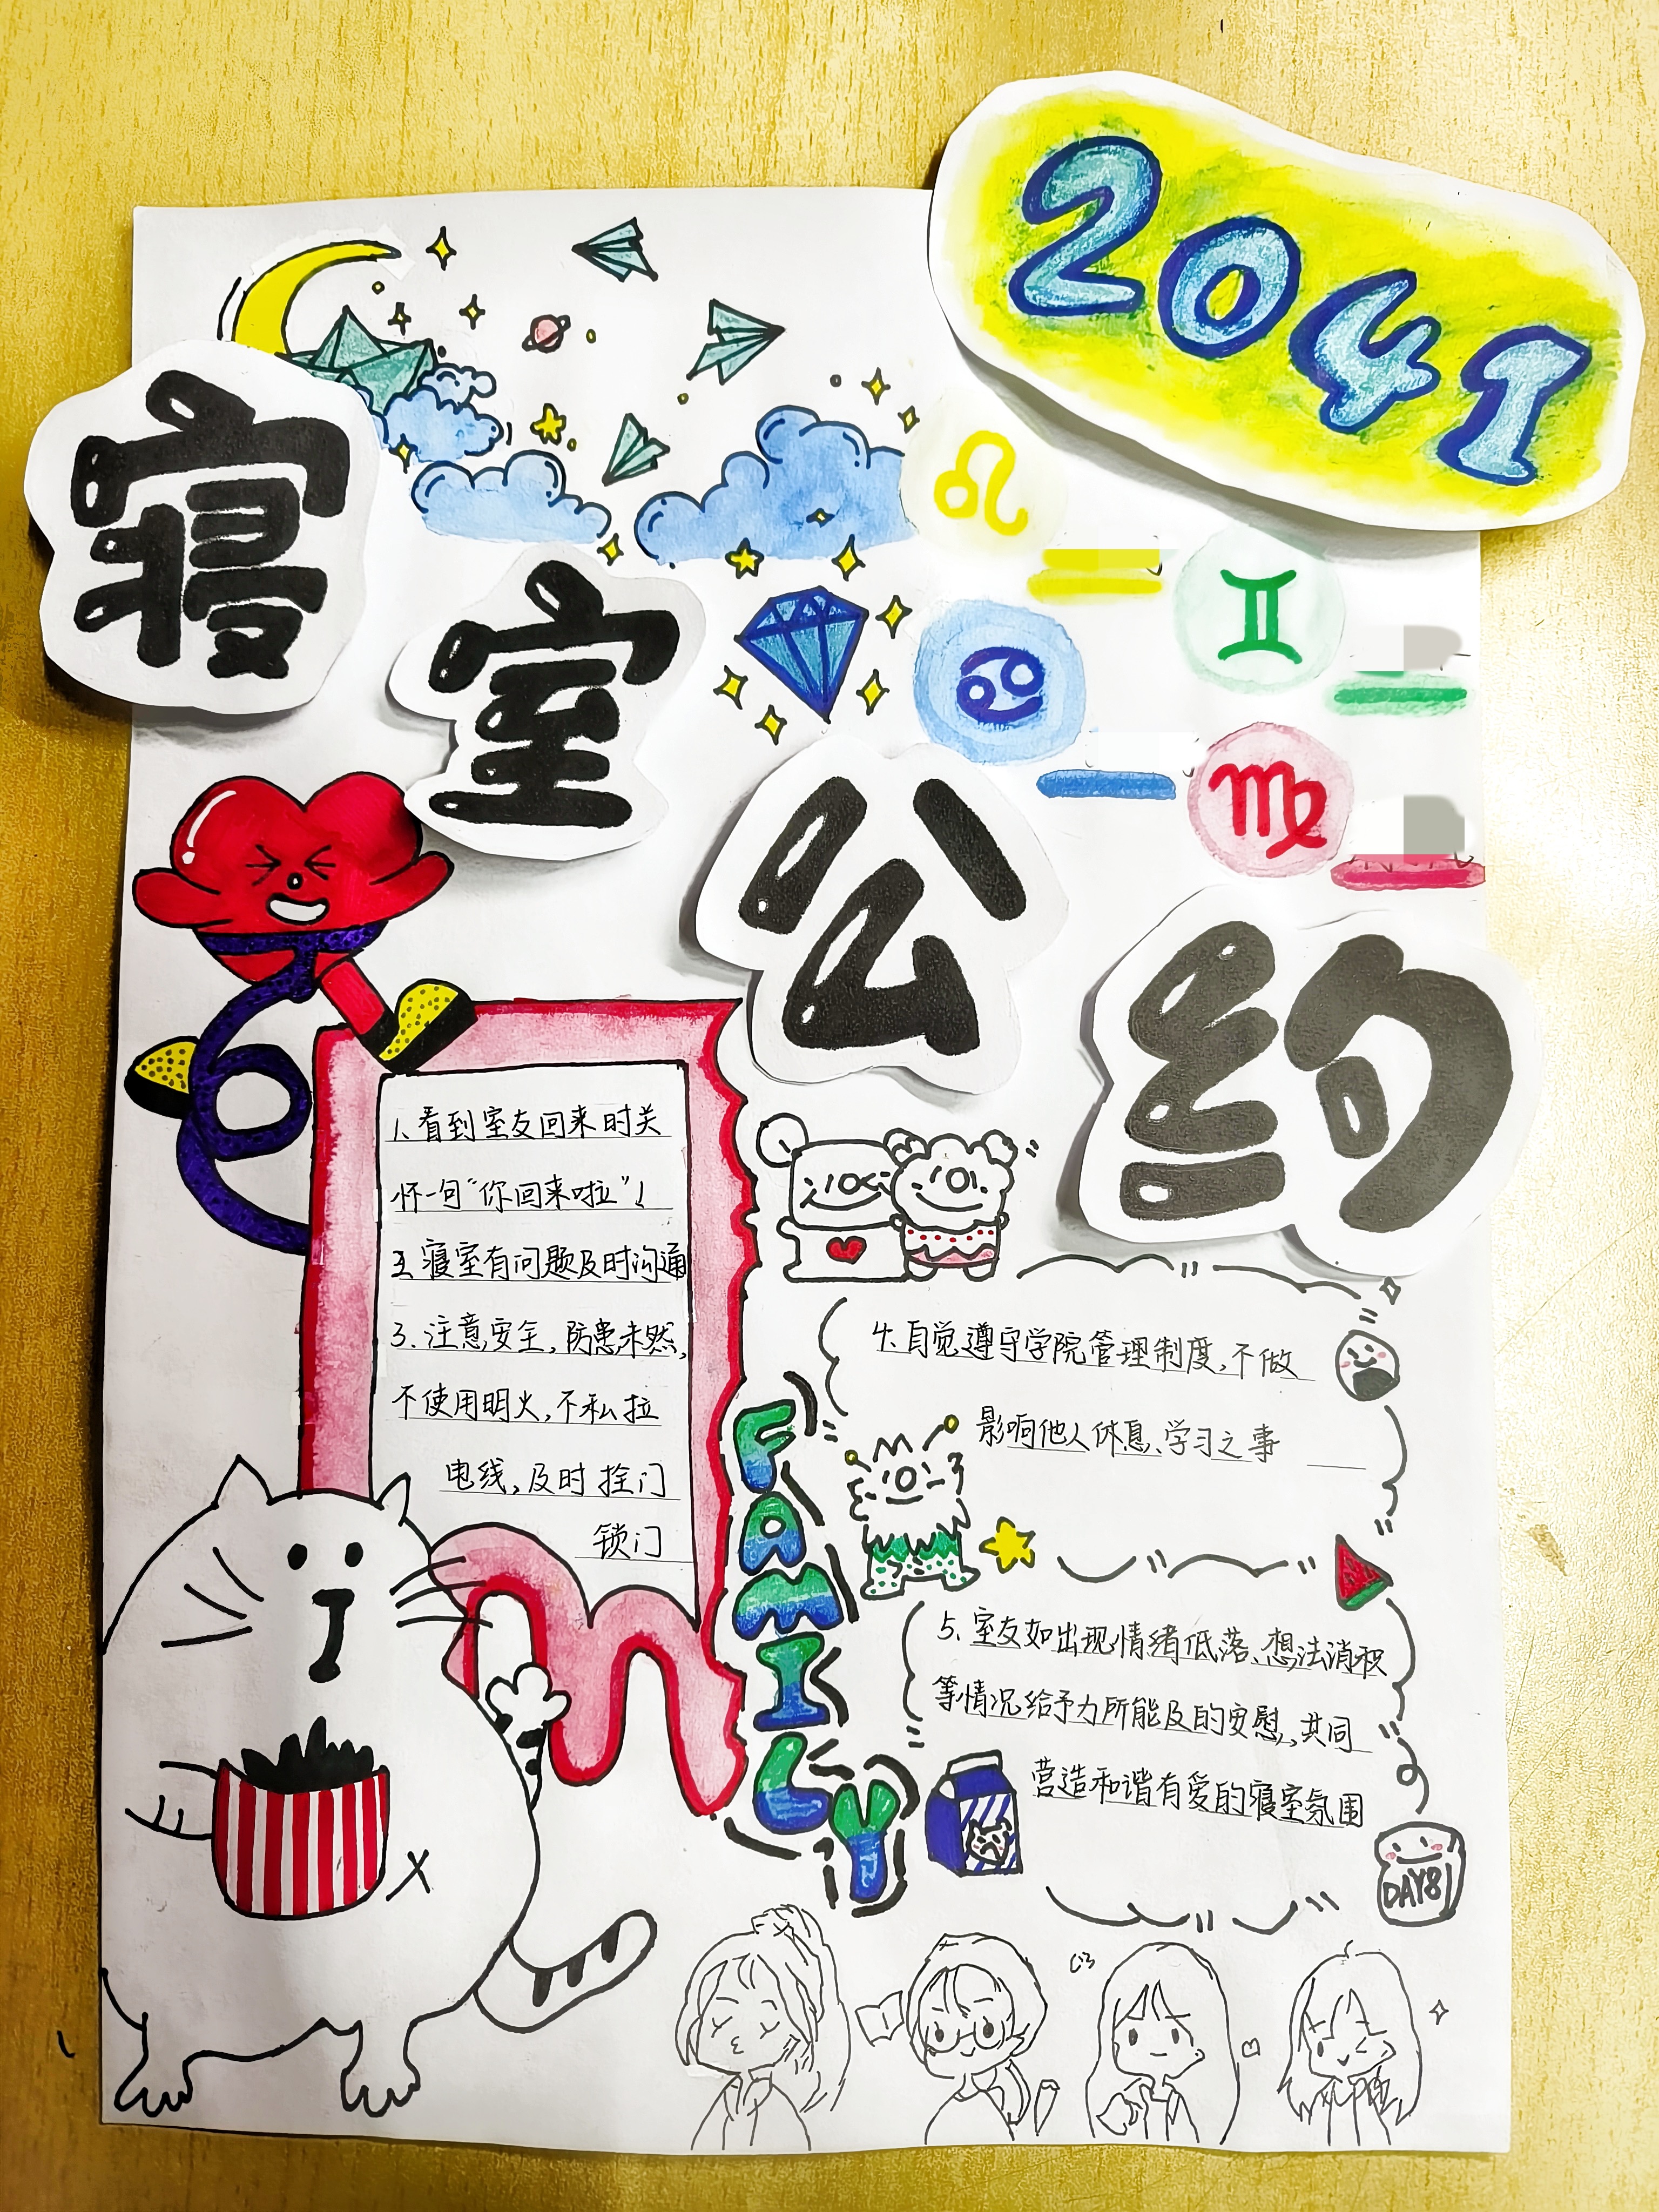 2041
寝室公约
1.看到室友回来时关
怀一句“你回来啦”!
2.寝室有问题及时沟通
3.注意安全,防患未然,
不使用明火,不私拉
电线,及时拴门
锁门
FAMILY
4.自觉遵守学院管理制度,不做
影响他人休息、学习之事
5.室友如出现情绪低落、想法消积
等情况给予力所能及的安慰,共同
营造和谐有爱的寝室氛围
DAY8